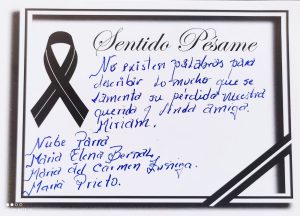 Sentido Pésame
No existen palabras para
describir lo mucho que se
lamenta su pérdida nuestra
querida y linda amiga.
Miriam.
Nube Parra
Maria Elena Bernal
Maria del Carmen Zuñiga.
Maria Prieto.